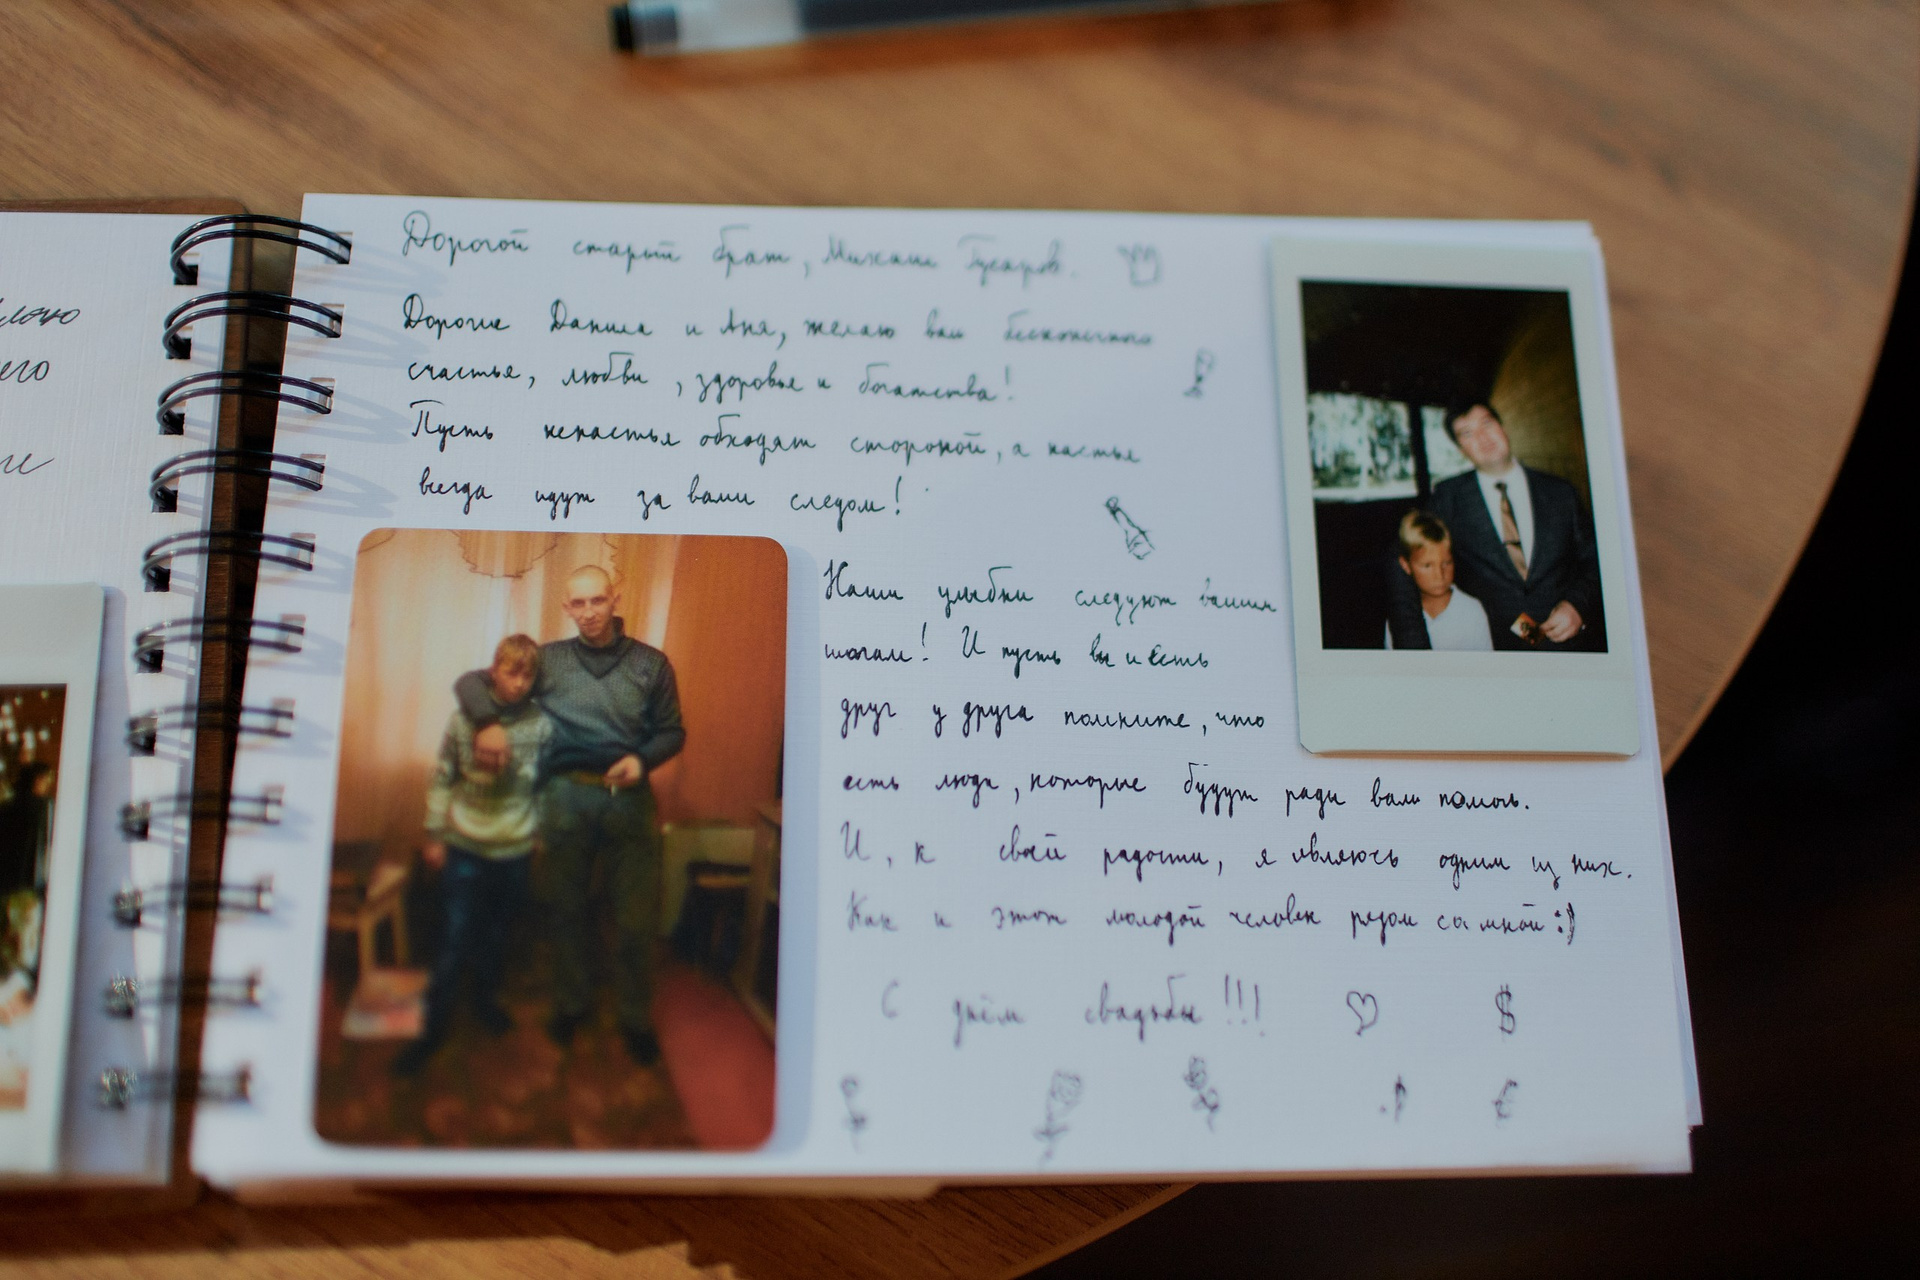 лою
его
Дорогой старый брат, Михаил Гусаров.
Дорогие Данила и Аня, желаю вам бесконечного
счастья, любви, здоровья и богатства!
Пусть ненастья обходят стороной, а настья
всегда идут за вами следом!
Наши улыбки следуют вашим
шагам! И пусть вы и есть
друг у друга помните, что
есть люди, которые будут рады вам помочь.
И, к своей радости, я являюсь одним из них.
Как и этот молодой человек рядом со мной :)
С днём свадьбы!!!
$
€